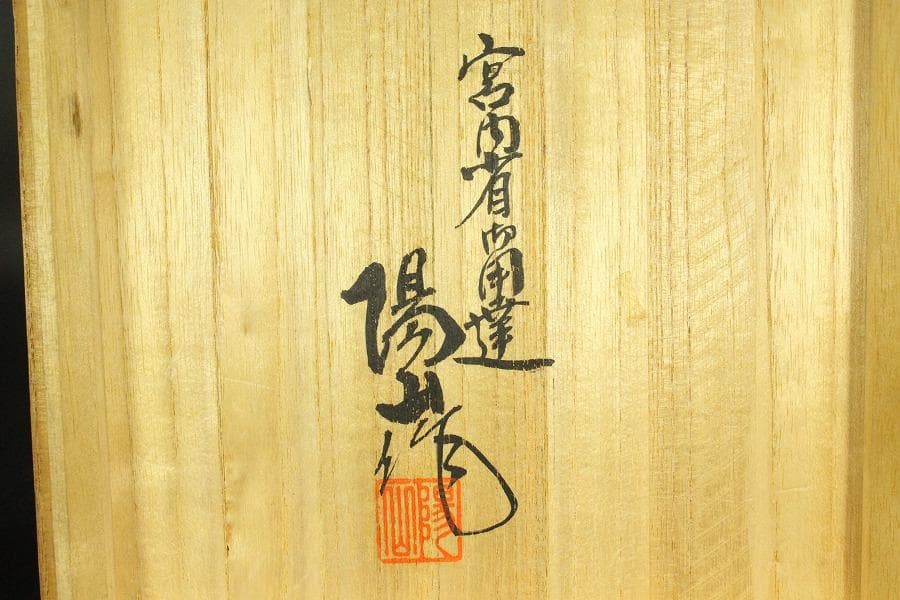 宮内省御用達
陽山作
陽山